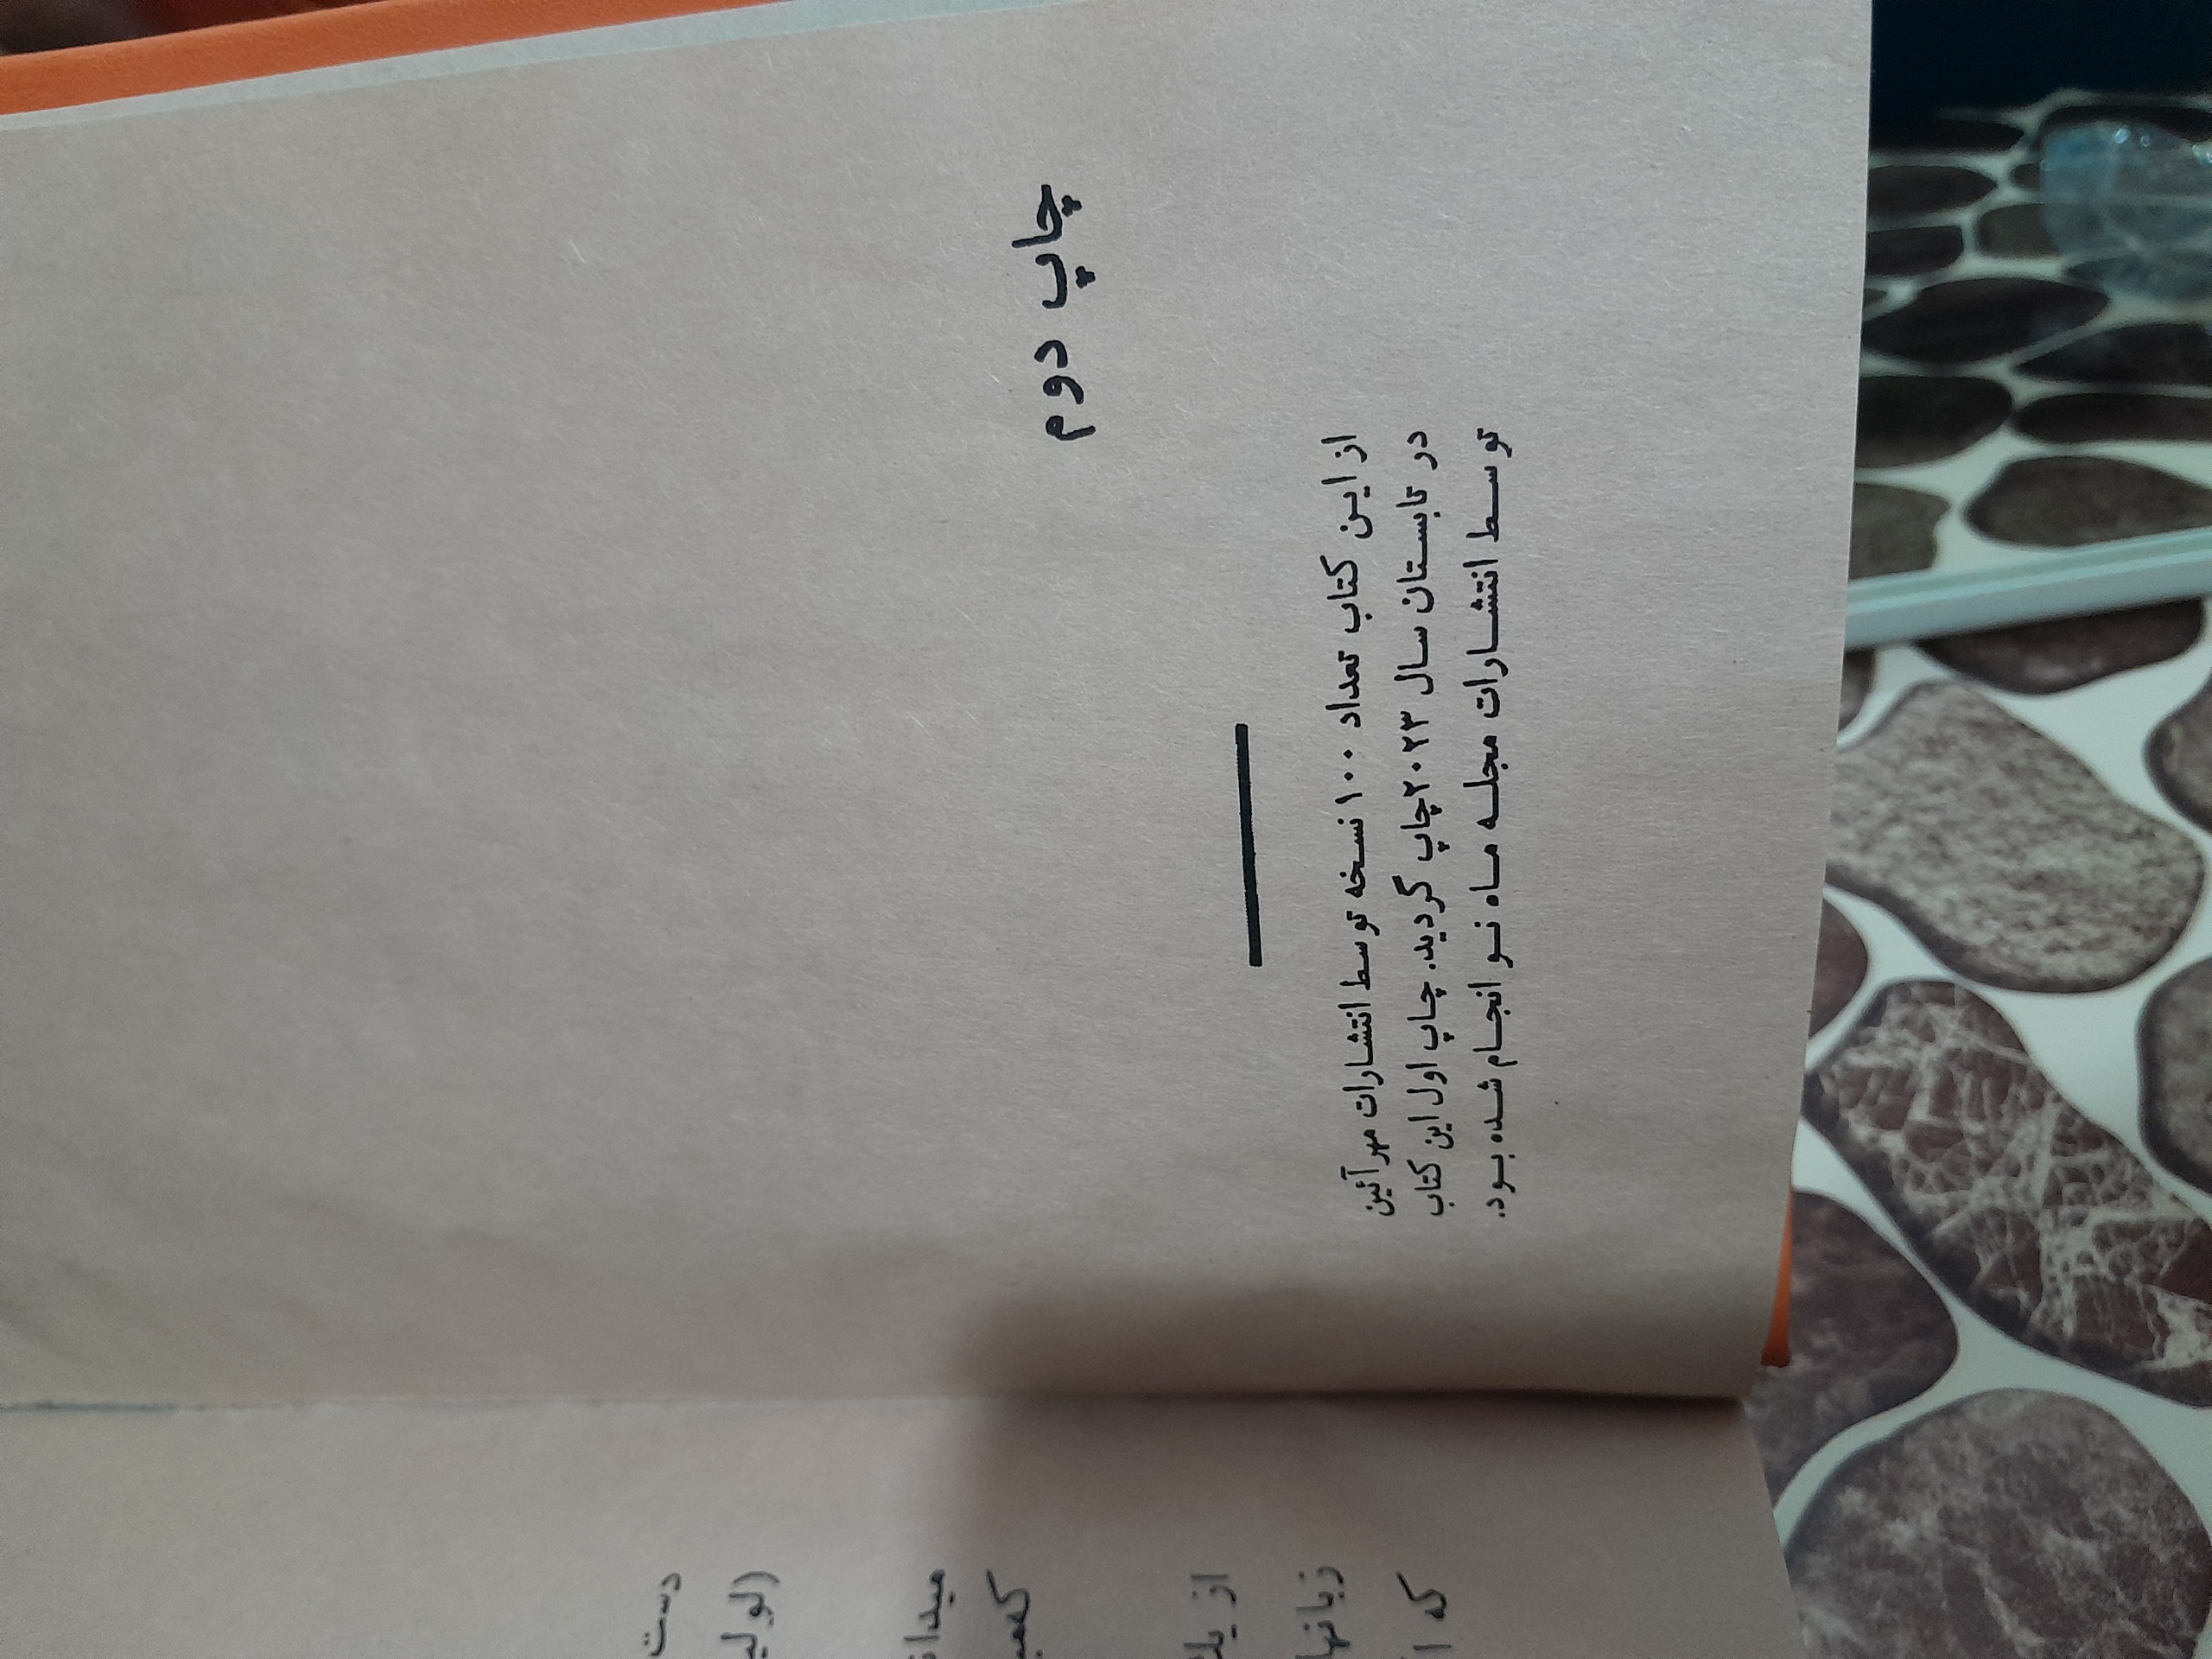 چاپ دوم
از این کتاب تعداد ۱۰۰ نسخه توسط انتشارات مهر آئین
در تابستان سال ۲۰۲۳ چاپ گردید. چاپ اول این کتاب
توسط انتشارات مجله ماه نو انجام شده بود.
دست
(لولیـ
میدانـ
که
از یک
زبانها
که ا